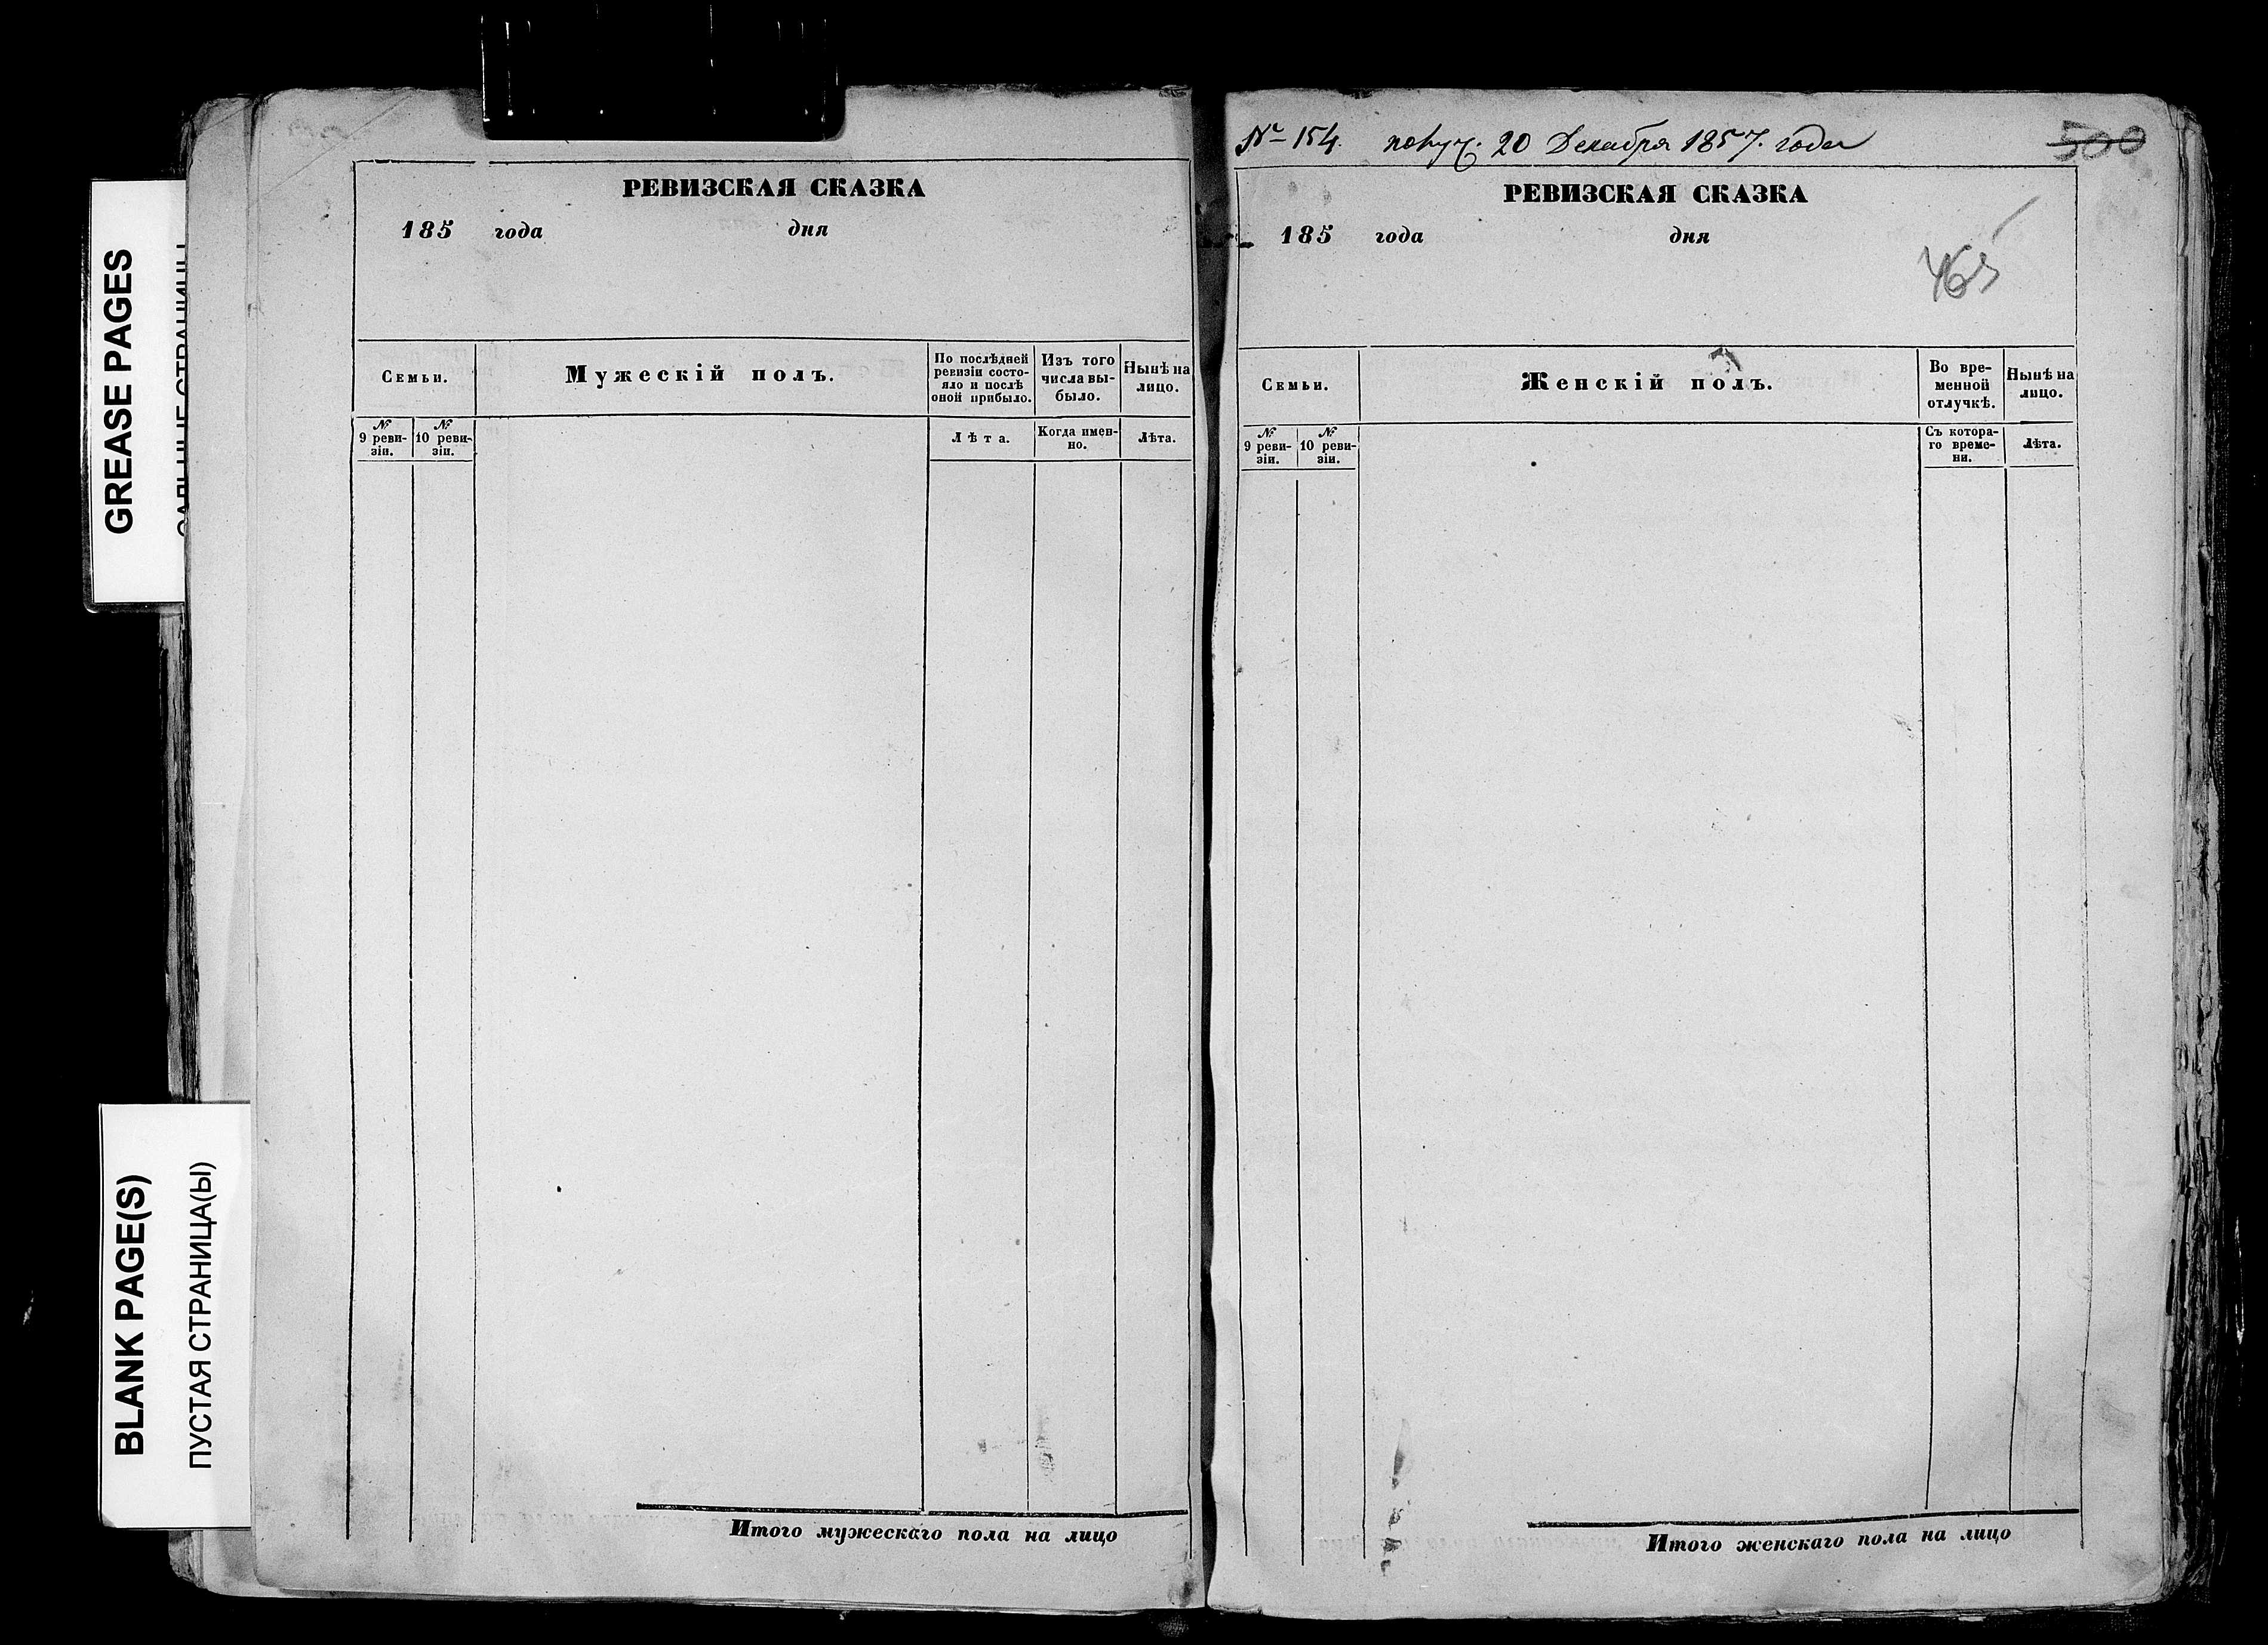 GREASE PAGES
BLANK PAGE(S)
ПУСТАЯ СТРАНИЦА(Ы)
РЕВИЗСКАЯ СКАЗКА
185 года дня
Семьи.
Мужескій полъ.
По послѣдней
ревизіи состо-
яло и послѣ
оной прибыло.
Изъ того
числа вы-
было.
Нынѣ на
лицо.
№
9 реви-
зіи.
№
10 реви-
зіи.
Лѣта.
Когда имен-
но.
Лѣта.
Итого мужескаго пола на лицо
№ 154. получ. 20 Декабря 1857. года
500
РЕВИЗСКАЯ СКАЗКА
185 года дня
465
Семьи.
Женскій полъ.
Во вре-
менной
отлучкѣ.
Нынѣ на
лицо.
№
9 реви-
зіи.
№
10 реви-
зіи.
Съ котора-
го време-
ни.
Лѣта.
Итого женскаго пола на лицо